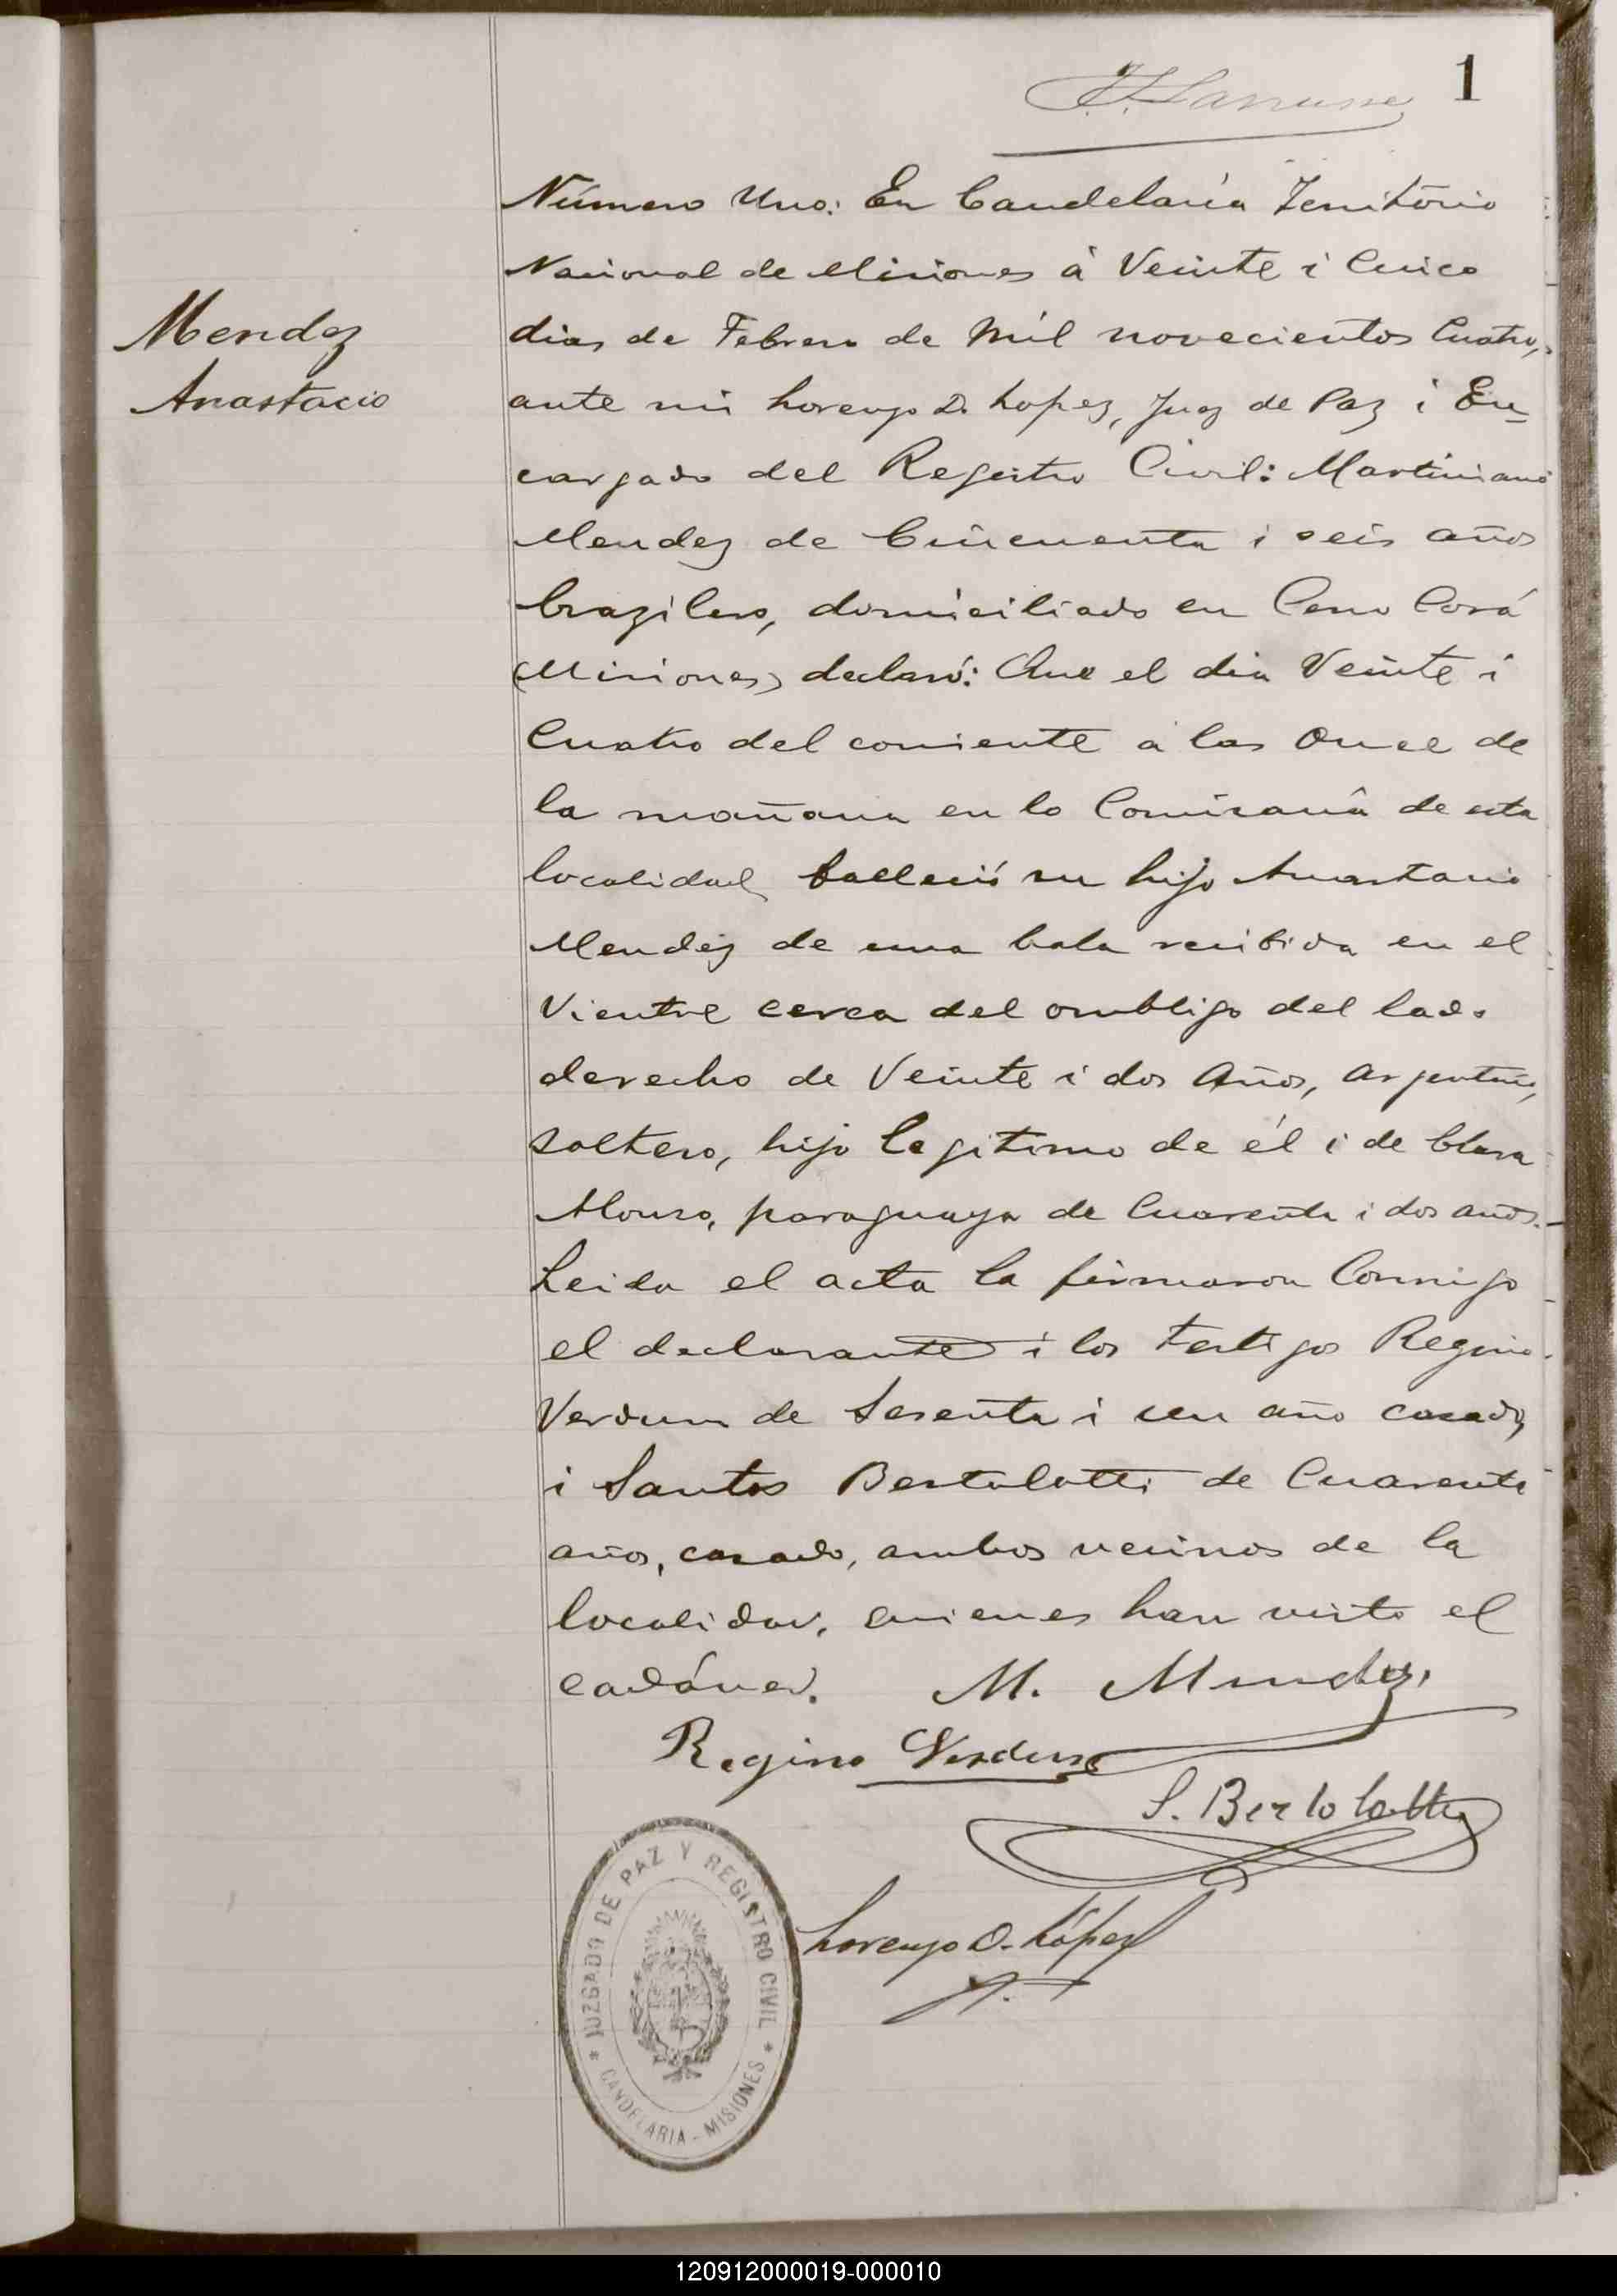 1
Número Uno: En Candelaria Territorio
Nacional de Misiones á Veinte i Cinco
dias de Febrero de Mil novecientos Cuatro,
ante mi Lorenzo D. Lopez, Juez de Paz i En-
cargado del Registro Civil: Martiniano
Mendez de Cincuenta i seis años
brazilero, domiciliado en Cerro Corá
(Misiones) declaró: Que el dia Veinte i
Cuatro del corriente a las Once de
la mañana en la Comisaria de esta
localidad falleció su hijo Anastacio
Mendez de una bala recibida en el
Vientre cerca del ombligo del lado
derecho de Veinte i dos Años, argentino,
soltero, hijo legitimo de él i de Clara
Alonso, paraguaya de Cuarenta i dos años.
Leida el acta la firmaron Conmigo
el declarante i los testigos Regino
Verdun de Sesenta i un año casado,
i Santos Bertolotti de Cuarenta
años, casado, ambos vecinos de la
localidad, quienes han visto el
cadáver. M. Mendez
Mendez
Anastacio
Regino Verdun
S. Bertolotti
Lorenzo D. López
JUZGADO DE PAZ Y REGISTRO CIVIL
* CANDELARIA - MISIONES *
120912000019-000010